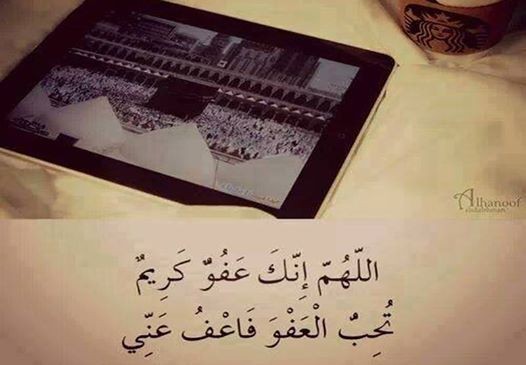 Alhanoof
اللّهُمّ إِنّكَ عَفُوٌ كَرِيمٌ
تُحِبُّ الْعَفْوَ فَاعْفُ عَنِّي